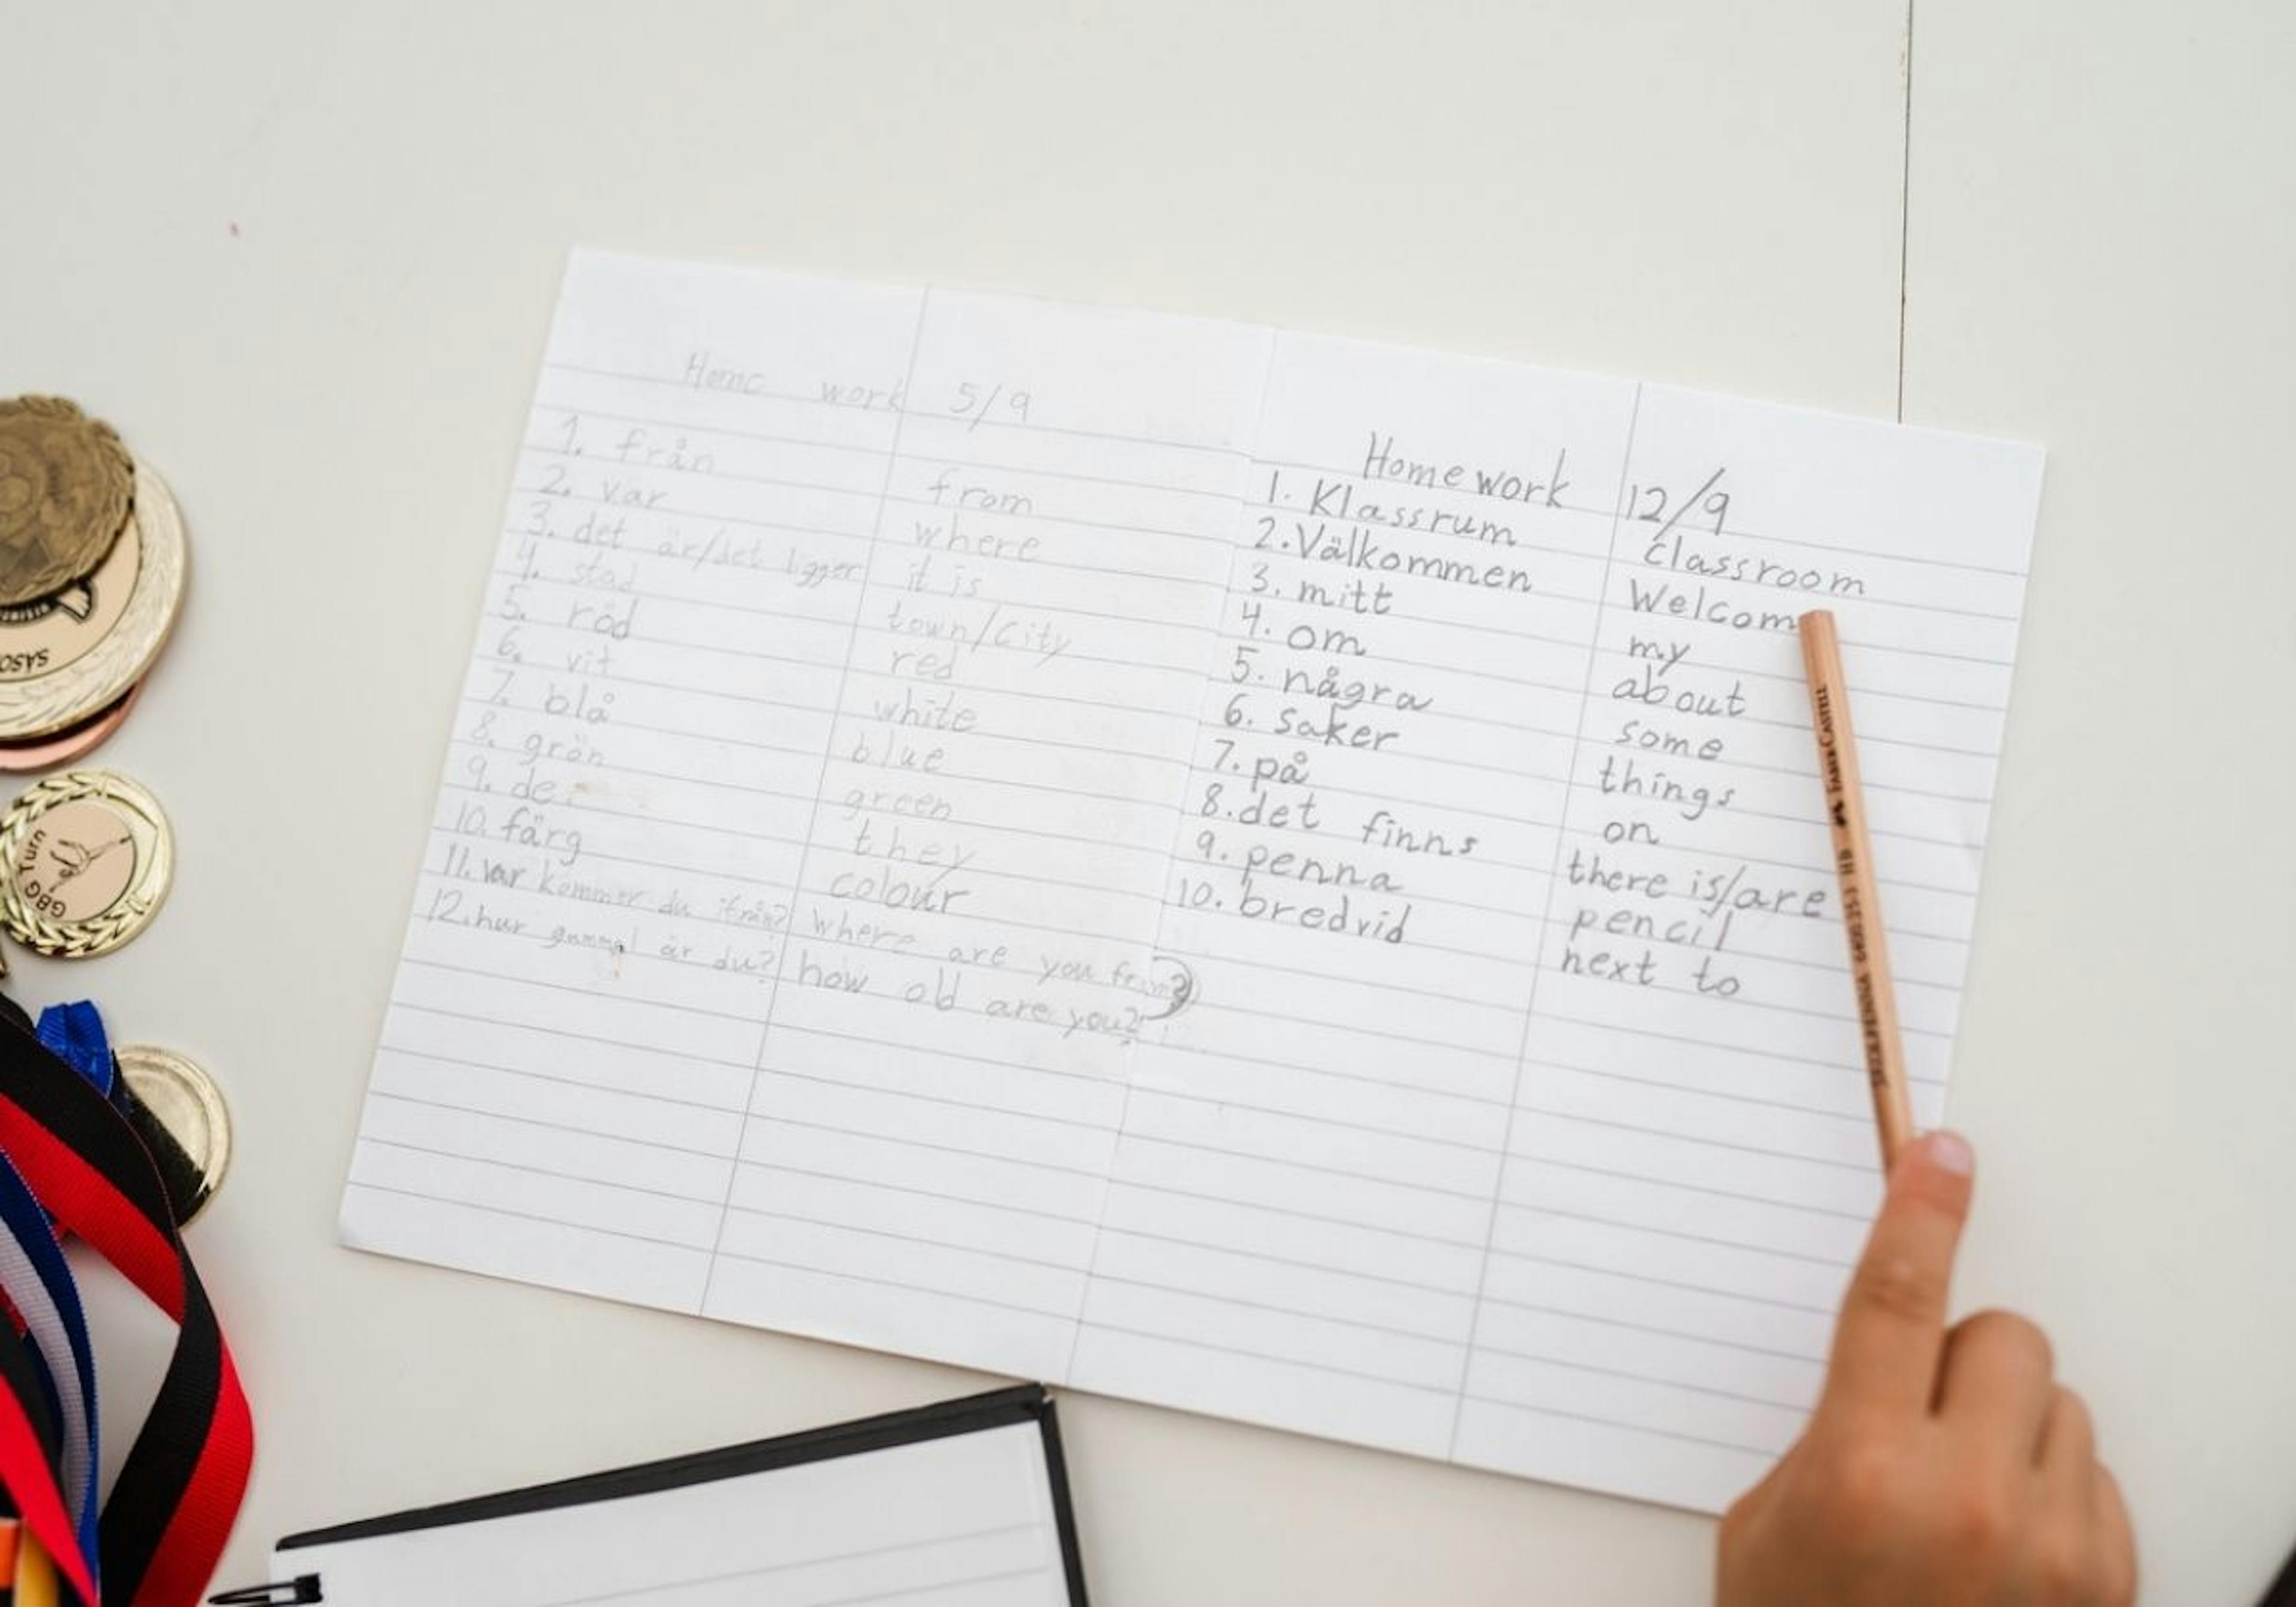 Home work 5/9
1. från from
2. var where
3. det är/det ligger it is
4. stad town/city
5. röd red
6. vit white
7. blå blue
8. grön green
9. de they
10. färg colour
11. var kommer du ifrån? where are you from?
12. hur gammal är du? how old are you?
Homework 12/9
1. Klassrum classroom
2. Välkommen Welcom
3. mitt my
4. om about
5. några some
6. saker things
7. på on
8. det finns there is/are
9. penna pencil
10. bredvid next to
FABER-CASTELL
HB
GBG Turn